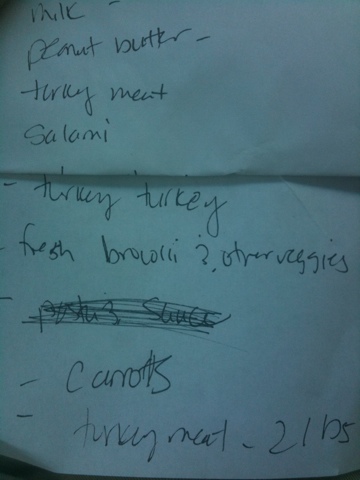 milk -
peanut butter -
turkey meat
Salami
- turkey turkey
- fresh browlii ?, other veggies
-
- Carrots
- turkey meat - 2 lbs